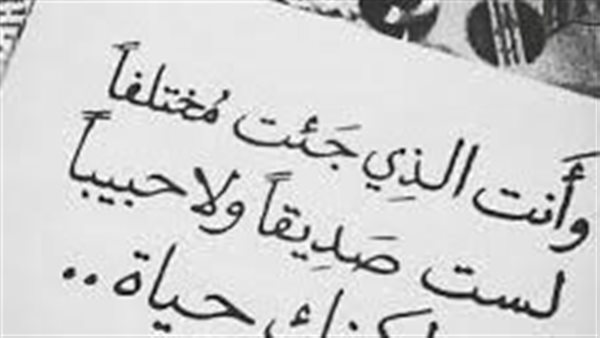 وأَنت الذِي جَئت مُختلفاً
لست صَدِيقاً ولا حبيباً
لكنك حياة..